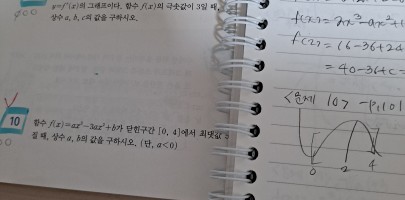 y=f'(x)의 그래프이다. 함수 f(x)의 극솟값이 3일 때,
상수 a, b, c의 값을 구하시오.
10
함수 f(x)=ax³-3ax²+b가 닫힌구간 [0, 4]에서 최댓값
질 때, 상수 a, b의 값을 구하시오. (단, a<0)
f(x)= 2x³-9x²+1
f(2)= 16-36+24
= 40-36+c =
<문제 10> -p.101
0 2 4